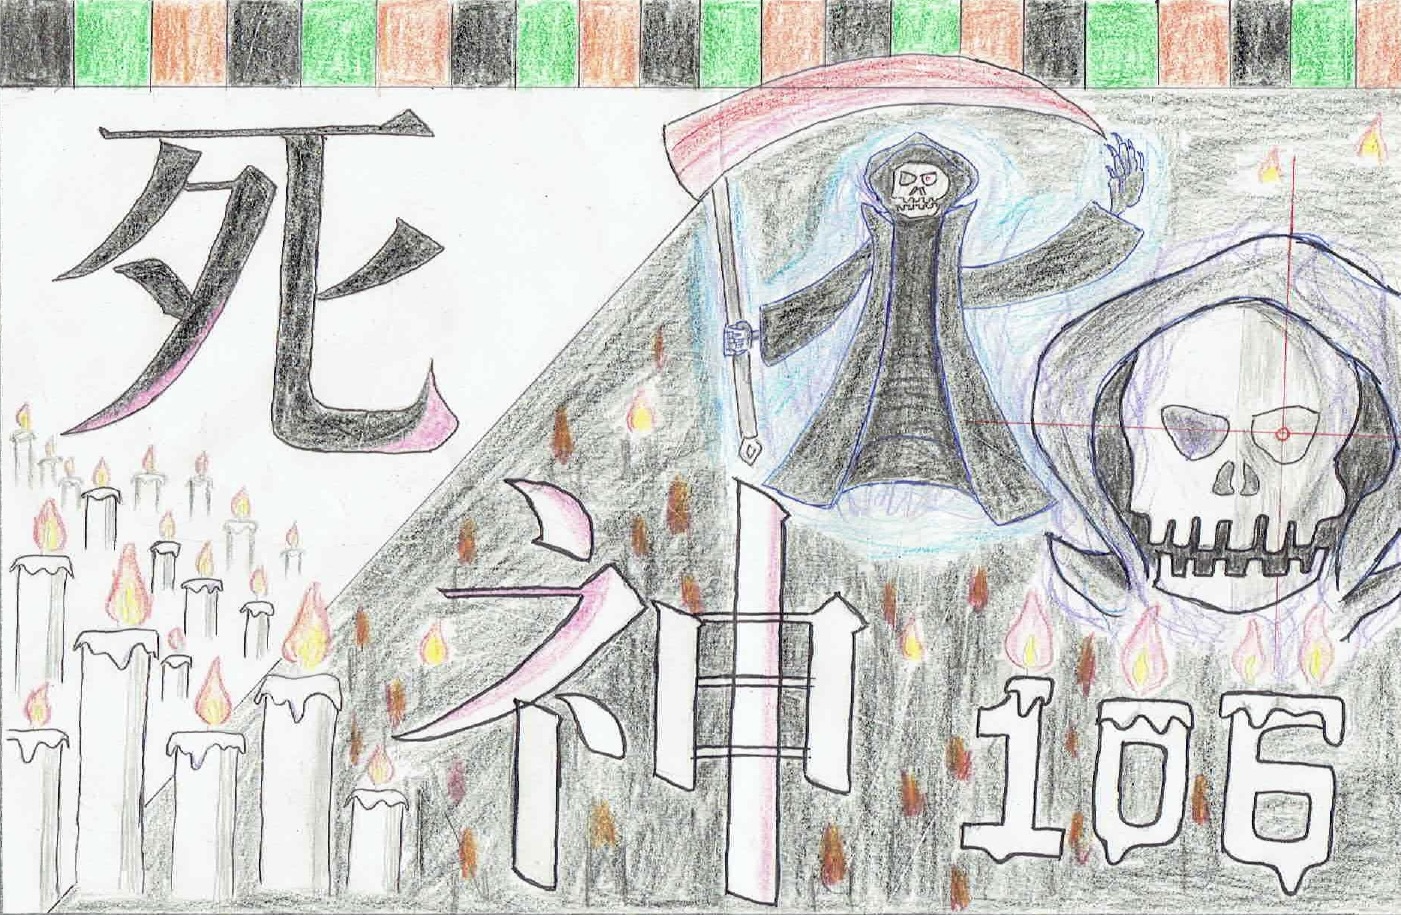 死
神
106